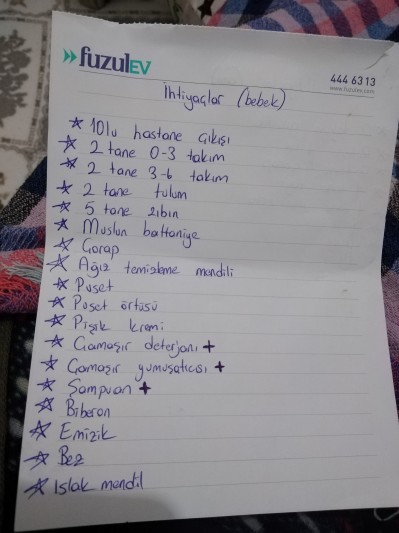 fuzulEV
444 63 13
www.fuzulev.com
İhtiyaçlar (bebek)
10lu hastane çıkışı
2 tane 0-3 takım
2 tane 3-6 takım
2 tane tulum
5 tane zıbın
Muslun battaniye
Çorap
Ağız temizleme mendili
Puset
Puset örtüsü
Pişik kremi
Çamaşır deterjanı +
Çamaşır yumuşatıcısı +
Şampuan +
Biberon
Emizik
Bez
Islak mendil